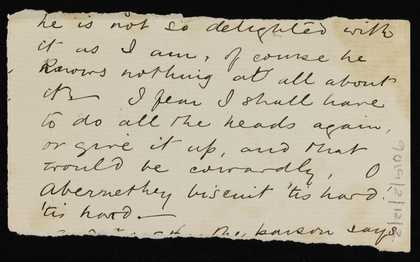 he is not so delighted with
it as I am, of course he
knows nothing at all about
it — I fear I shall have
to do all the heads again,
or give it up, and that
would be cowardly, O
Abernethey biscuit 'tis hard
'tis hard —
the parson says